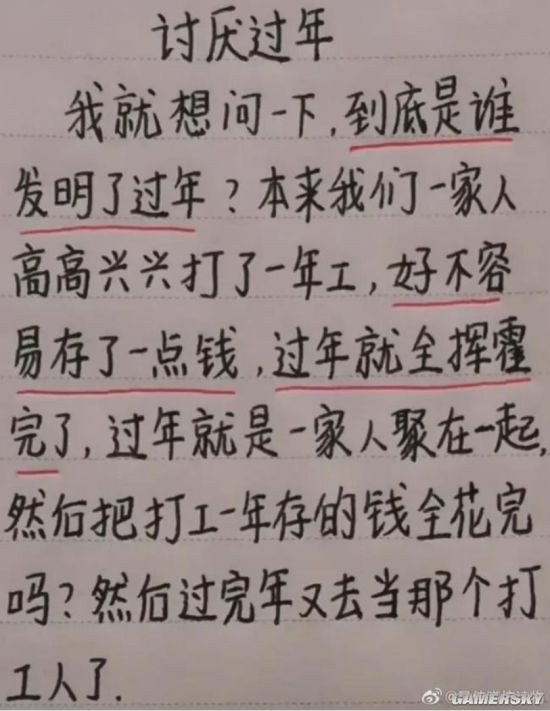 讨厌过年
我就想问一下,到底是谁
发明了过年?本来我们一家人
高高兴兴打了一年工,好不容
易存了一点钱,过年就全挥霍
完了,过年就是一家人聚在一起,
然后把打工一年存的钱全花完
吗?然后过完年又去当那个打
工人了.
GAMERSKY